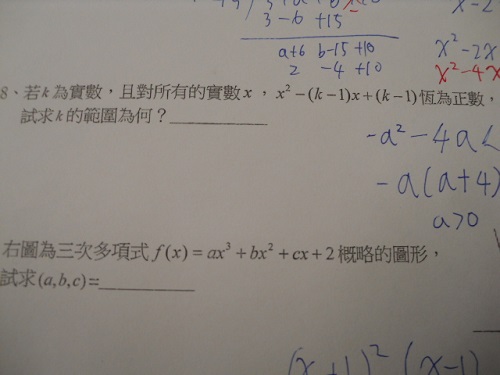 3 -6 +15
a+6 b-15 +10
2 -4 +10
x²-2x
x²-4x
8、若k為實數,且對所有的實數x,x²-(k-1)x+(k-1)恆為正數,
試求k的範圍為何?
-a²-4a<
-a(a+4)
a>0
右圖為三次多項式f(x)=ax³+bx²+cx+2概略的圖形,
試求(a,b,c)=
(x+1)²(x-1)